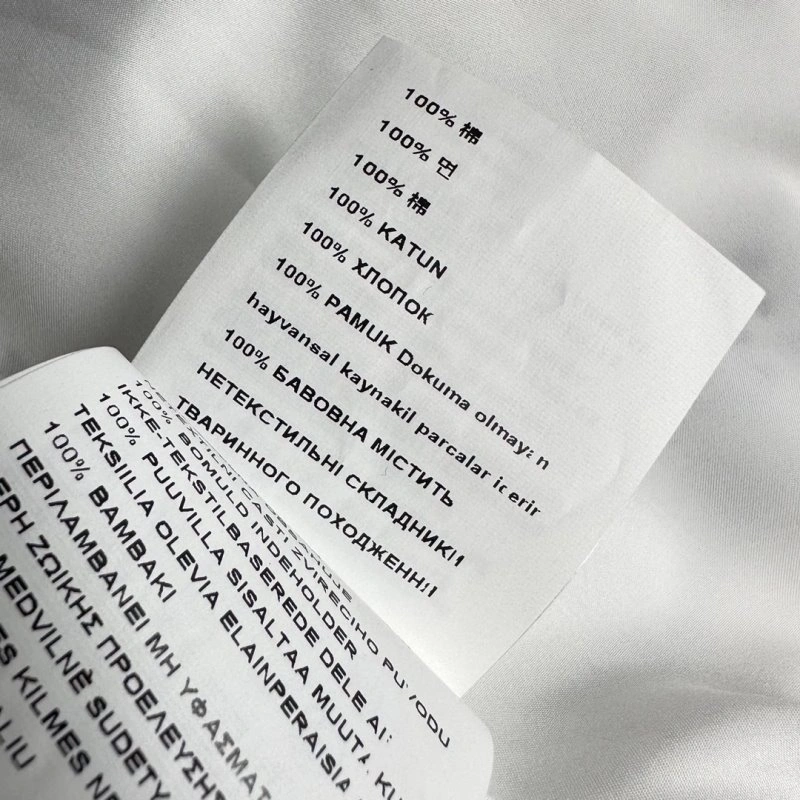 100% 棉
100% 면
100% 棉
100% KATUN
100% ХЛОПОК
100% PAMUK Dokuma olmayan
hayvansal kaynakil parcalar icerir
100% БАВОВНА МІСТИТЬ
НЕТЕКСТИЛЬНІ СКЛАДНИКИ
ТВАРИННОГО ПОХОДЖЕННЯ
100% BOMULD INDEHOLDER
IKKE-TEKSTILBASEREDE DELE
100% PUUVILLA SISALTAA MUUTA
TEKSIILIA OLEVIA ELAINPERAISIA
100% BAMBAKI
ΠΕΡΙΛΑΜΒΑΝΕΙ ΜΗ ΥΦΑΣΜΑΤ
ΕΡΗ ΖΩΙΚΗΣ ΠΡΟΕΛΕΥΣΗΣ
MEDVILNÈ SUDETY
ES KILMES NE
ALIU